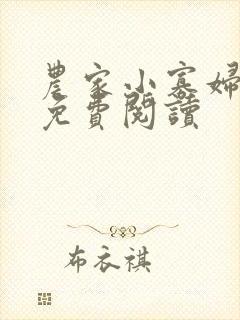 農家小寡婦
免費閱讀
布衣祺